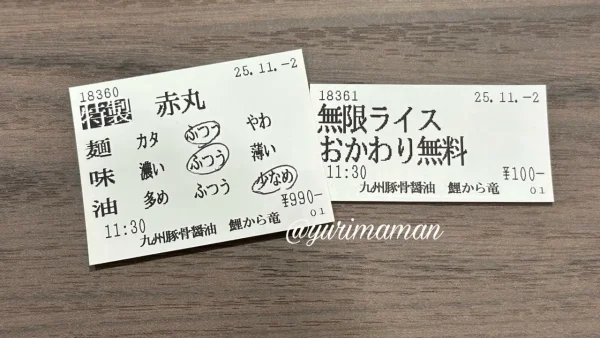 18360
25.11.-2
特製 赤丸
麺 カタ ふつう やわ
味 濃い ふつう 薄い
油 多め ふつう 少なめ
¥990-
11:30
01
九州豚骨醤油 鯉から竜
18361
25.11.-2
無限ライス
おかわり無料
11:30
¥100-
九州豚骨醤油 鯉から竜
01
@yurimaman